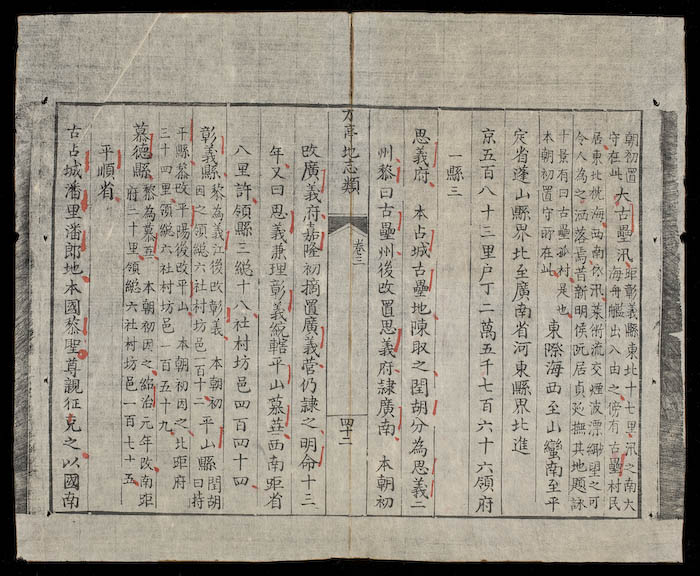 朝初置
守在此
大古壘汛
距彰義縣東北十七里汛之南大
海舟艫出入由之傍有古壘村民
居東北枕海西南汛菜術流交煙波漂緲望之可
令人為之洒落焉昔新明侯阮居貞巡撫其地題詠
十景有曰古壘莎村是也
本朝初置守所在此
東際海西至山蠻南至平
定省蓬山縣界北至廣南省河東縣界北進
京五百八十三里戶丁二萬五千七百六十六領府
一縣三
思義府 本占城古壘地陳取之閏胡分為思義二
州黎曰古壘州後改置思義府隸廣南 本朝初
方亭地志類 卷三 四二
改廣義府嘉隆初摘置廣義營仍隸之明命十三
年又曰思義兼理彰義統轄平山慕 西南距省
八里許領縣三總十八社村坊邑四百四十四
彰義縣
黎為義江後改彰義 本朝初
因之領總六社村坊邑一百十二
平山縣
閏胡
曰持
平縣黎改平陽後改平山 本朝初因之北距府
三十四里領總六社村坊邑一百五十九
慕德縣
黎為慕 本朝初因之紹治元年改南距
府二十里領總六社村坊邑一百七十五
平順省
古占城潘里潘郎地本國黎聖尊親征克之以國南